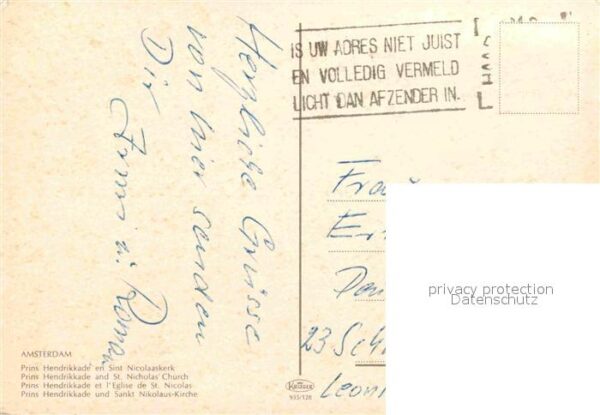 Herzliche Grüsse
von hier senden
Dir
u. Roman
IS UW ADRES NIET JUIST
EN VOLLEDIG VERMELD
LICHT DAN AFZENDER IN.
Frau
23 Sch
Leoni
privacy protection
Datenschutz
AMSTERDAM
Prins Hendrikkade en Sint Nicolaaskerk
Prins Hendrikkade and St. Nicholas' Church
Prins Hendrikkade et l'Eglise de St. Nicolas
Prins Hendrikkade und Sankt Nikolaus-Kirche
KRÜGER
935/128